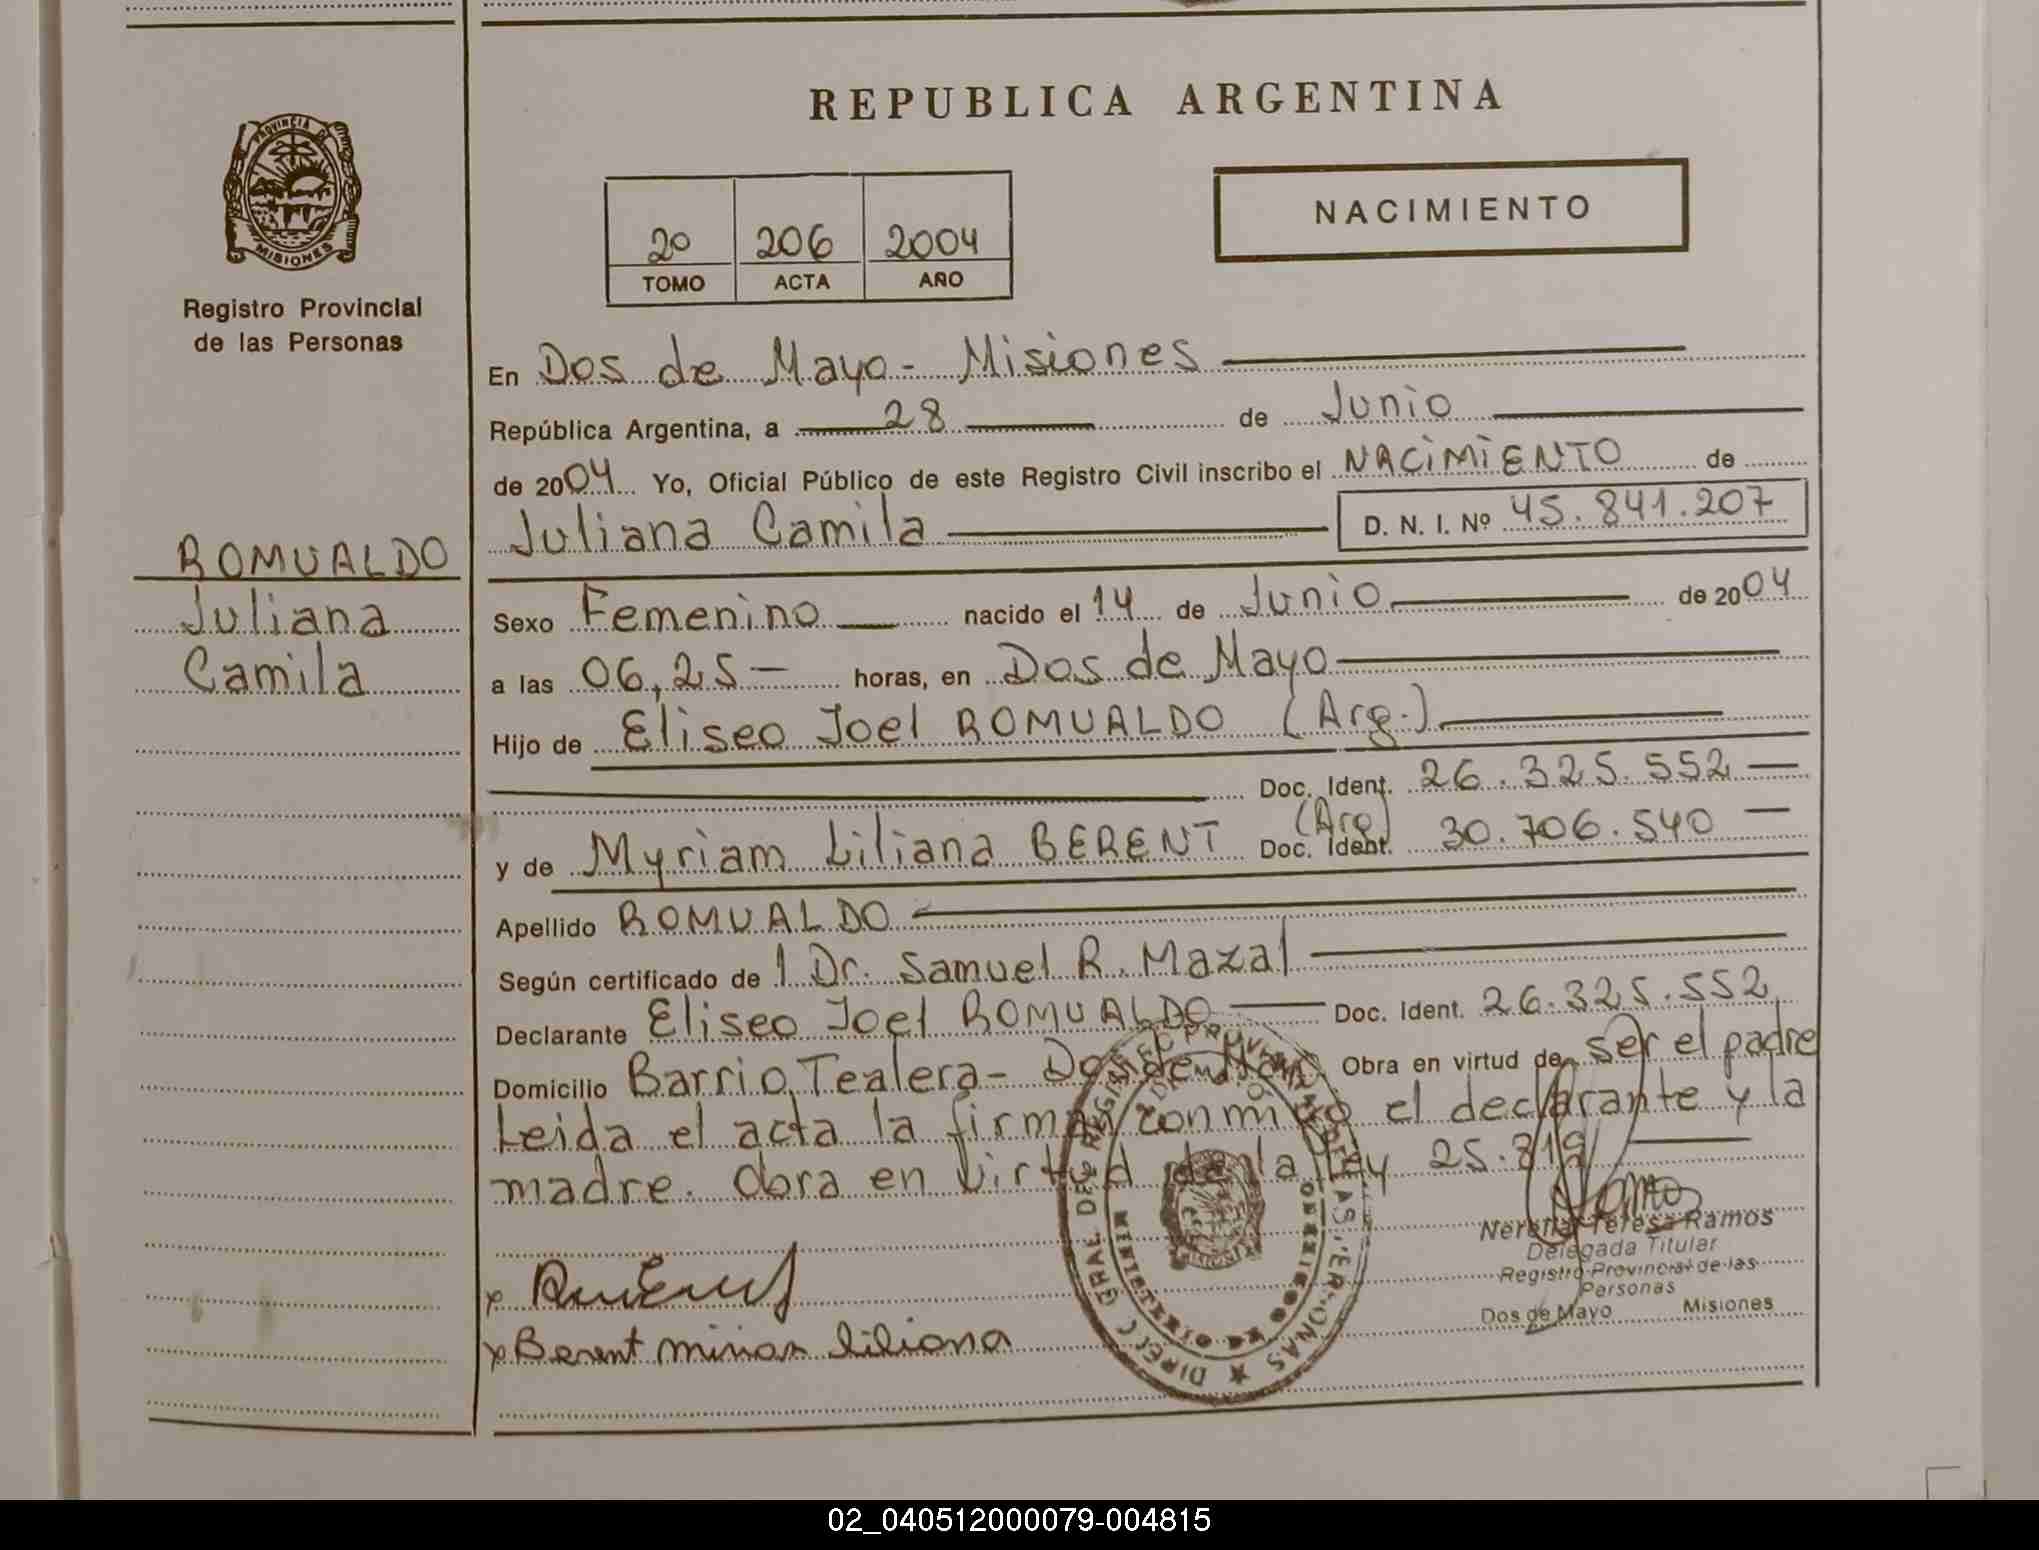 REPUBLICA ARGENTINA
PROVINCIA DE
MISIONES
Registro Provincial
de las Personas
2º 206 2004
TOMO ACTA AÑO
NACIMIENTO
En Dos de Mayo - Misiones
República Argentina, a 28 de Junio
de 2004 Yo, Oficial Público de este Registro Civil inscribo el NACIMIENTO de
Juliana Camila D. N. I. Nº 45.841.207
ROMUALDO
Juliana
Camila
Sexo Femenino nacido el 14 de Junio de 2004
a las 06,25 - horas, en Dos de Mayo
Hijo de Eliseo Joel ROMUALDO (Arg.)
Doc. Ident. 26.325.552 -
y de Myriam Liliana BERENT (Arg) Doc. Ident. 30.706.540 -
Apellido ROMUALDO
Según certificado de l Dr. Samuel R. Mazal
Declarante Eliseo Joel ROMUALDO Doc. Ident. 26.325.552
Domicilio Barrio Tealera - Dos de Mayo Obra en virtud de ser el padre
Leida el acta la firman conmigo el declarante y la
madre. Obra en virtud de la ley 25.819
x
x Berent mirian liliana
Nerena Teresa Ramos
Delegada Titular
Registro Provincial de las
Personas
Dos de Mayo Misiones
02_040512000079-004815